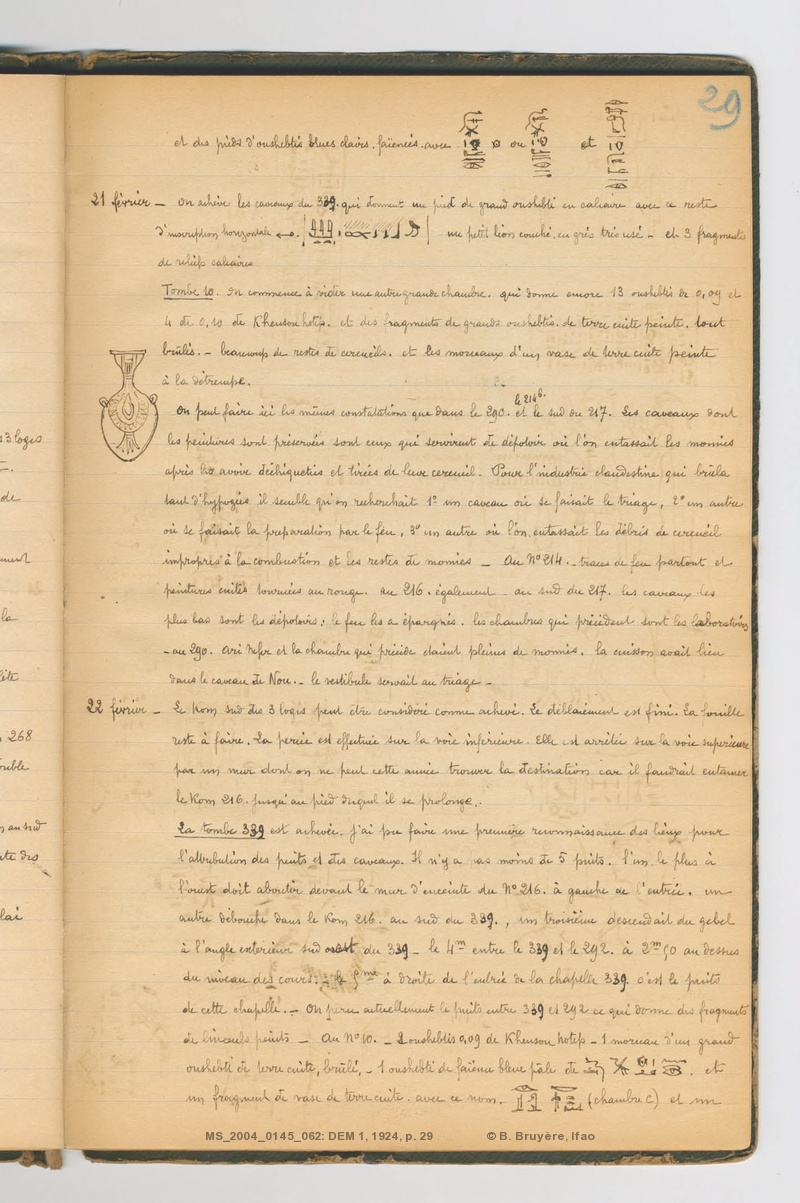 29
et des pieds d'oushebtis bleus clairs. faïencés. avec ou et
21 février — On achève les caveaux du 339. qui donnent un pied de grand oushebti en calcaire avec ce reste
d'inscription horizontale ←. un petit lion couché. en grès très usé — et 3 fragments
de reliefs calcaires
Tombe 10. On commence à vider une autre grande chambre. qui donne encore 13 oushebtis de 0,09 et
4 de 0,10 de Khensou hotep. et des fragments de grands oushebtis. de terre cuite peinte. tout
brûlés. — beaucoup de restes de cercueils. et les morceaux d'un vase de terre cuite peinte
à la détrempe.
le 214b.
On peut faire ici les mêmes constatations que dans le 290. et le sud du 217. Les caveaux dont
les peintures sont préservées sont ceux qui servirent de dépotoir où l'on entassait les momies
après les avoir déchiquetées et tirées de leur cercueil — Pour l'industrie clandestine qui brûla
tant d'hypogées il semble qu'on recherchait 1° un caveau où se faisait le triage, 2° un autre
où se faisait la préparation par le feu, 3° un autre où l'on entassait les débris de cercueil
impropres à la combustion et les restes de momies — Au N° 214. — traces de feu partout et
peintures cuites tournées au rouge. au 216. également — au sud du 217. les caveaux les
plus bas sont les dépotoirs : le feu les a épargnés. les chambres qui précèdent sont les laboratoires
— au 290. Ari Nefer et la chambre qui précède étaient pleines de momies. la cuisson avait lieu
dans le caveau de Nou. — le vestibule servait au triage —
22 février — Le Kom sud des 3 loges peut être considéré comme achevé. Le déblaiement est fini. La fouille
reste à faire. La percée est effectuée sur la voie inférieure. Elle est arrêtée sur la voie supérieure
par un mur dont on ne peut cette année trouver la destination car il faudrait entamer
le Kom 216. jusqu'au pied duquel il se prolonge.
La tombe 339 est achevée. J'ai pu faire une première reconnaissance des lieux pour
l'attribution des puits et des caveaux. Il n'y a pas moins de 5 puits. l'un le plus à
l'ouest doit aboutir devant le mur d'enceinte du N° 216. à gauche de l'entrée. un
autre débouche dans le Kom 216. au sud du 339., un troisième descendait du gebel
à l'angle extérieur sud ouest du 339 — le 4me entre le 339 et le 292. à 2m50 au dessus
du niveau des cours. — le 5me à droite de l'entrée de la chapelle 339. c'est le puits
de cette chapelle. — On perce actuellement le puits entre 339 et 292 ce qui donne des fragments
de linceuls peints — Au N° 10. — 2 oushebtis 0,09 de Khensou hotep — 1 morceau d'un grand
oushebti de terre cuite, brûlé, — 1 oushebti de faïence bleue pâle de et
un fragment de vase de terre cuite. avec ce nom. (chambre C) et un
3 loges
de
la
268
au sud
MS_2004_0145_062: DEM 1, 1924, p. 29 © B. Bruyère, Ifao